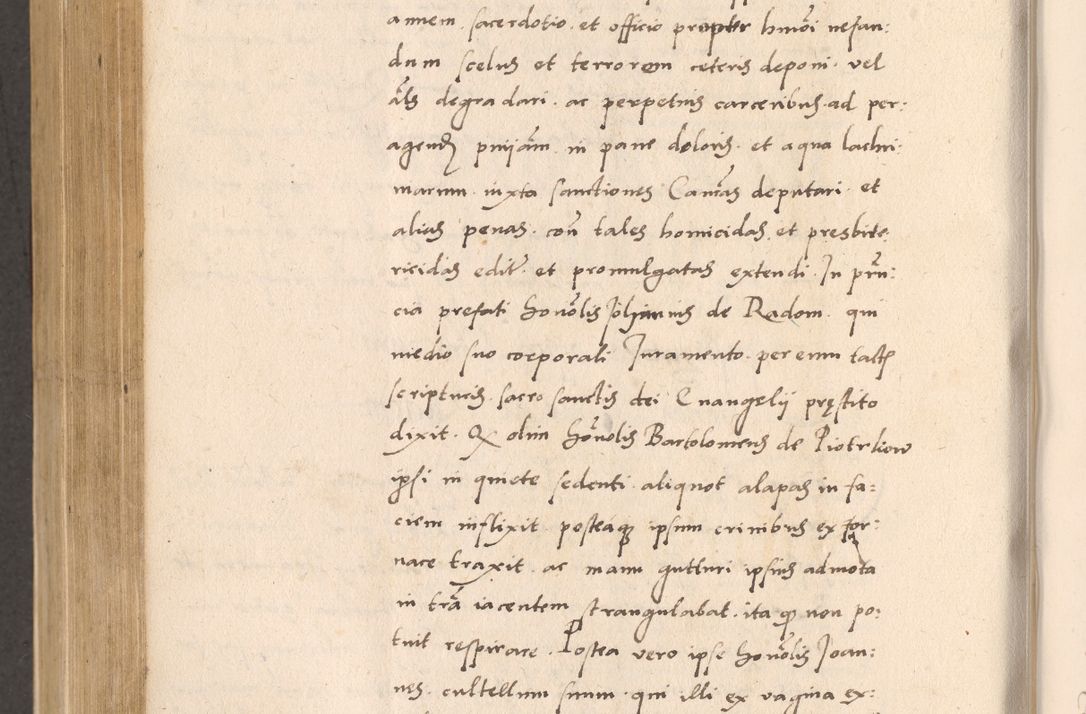 annem sacerdotio et officio propter hmoi nefan:
dum scelus et terrorem ceteris deponi vel
als degradari ac perpetuis carceribus ad per:
agend pniam in pane doloris et aqua lachri:
marum iuxta sanctiones Canicas deputari et
alias penas con tales homicidas et presbite
ricidas edit et promulgatas extendi In prn:
cia prefati honolis Johannis de Radom qui
medio suo corporali Juramento per eum tact
scripturis sacro sanctis dei Euangelij pręstito
dixit Q olim honolis Bartolomeus de Piotrkow
ipsi in quiete sedenti aliquot alapas in fa:
ciem inflixit posteaq ipsum crinibus ex for:
nace traxit ac manu gutturi ipsius admota
in tra iacentem strangulabat ita q non po:
tuit respirare Postea vero ipse honolis Joan:
nes cultellum suum qui illi ex vagina ex: